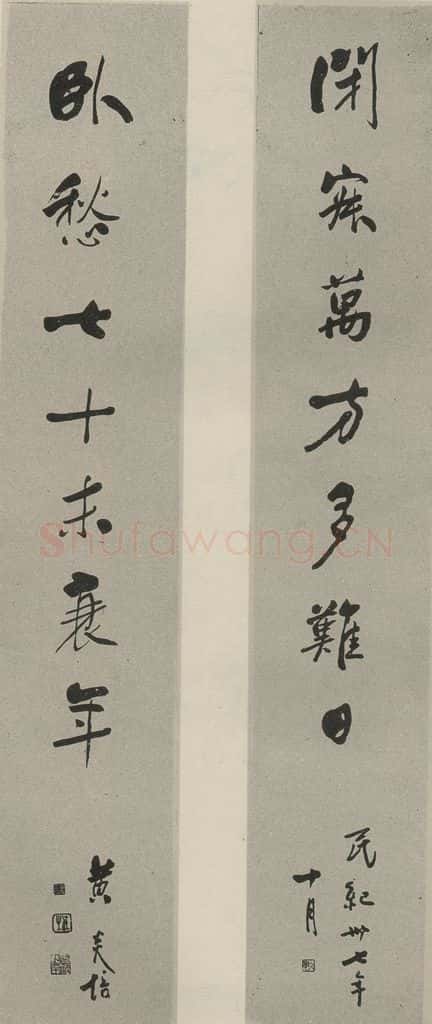 閉寐萬方多難日
民紀卅七年
十月
臥愁七十未衰年
黄炎培
Shufawang.CN